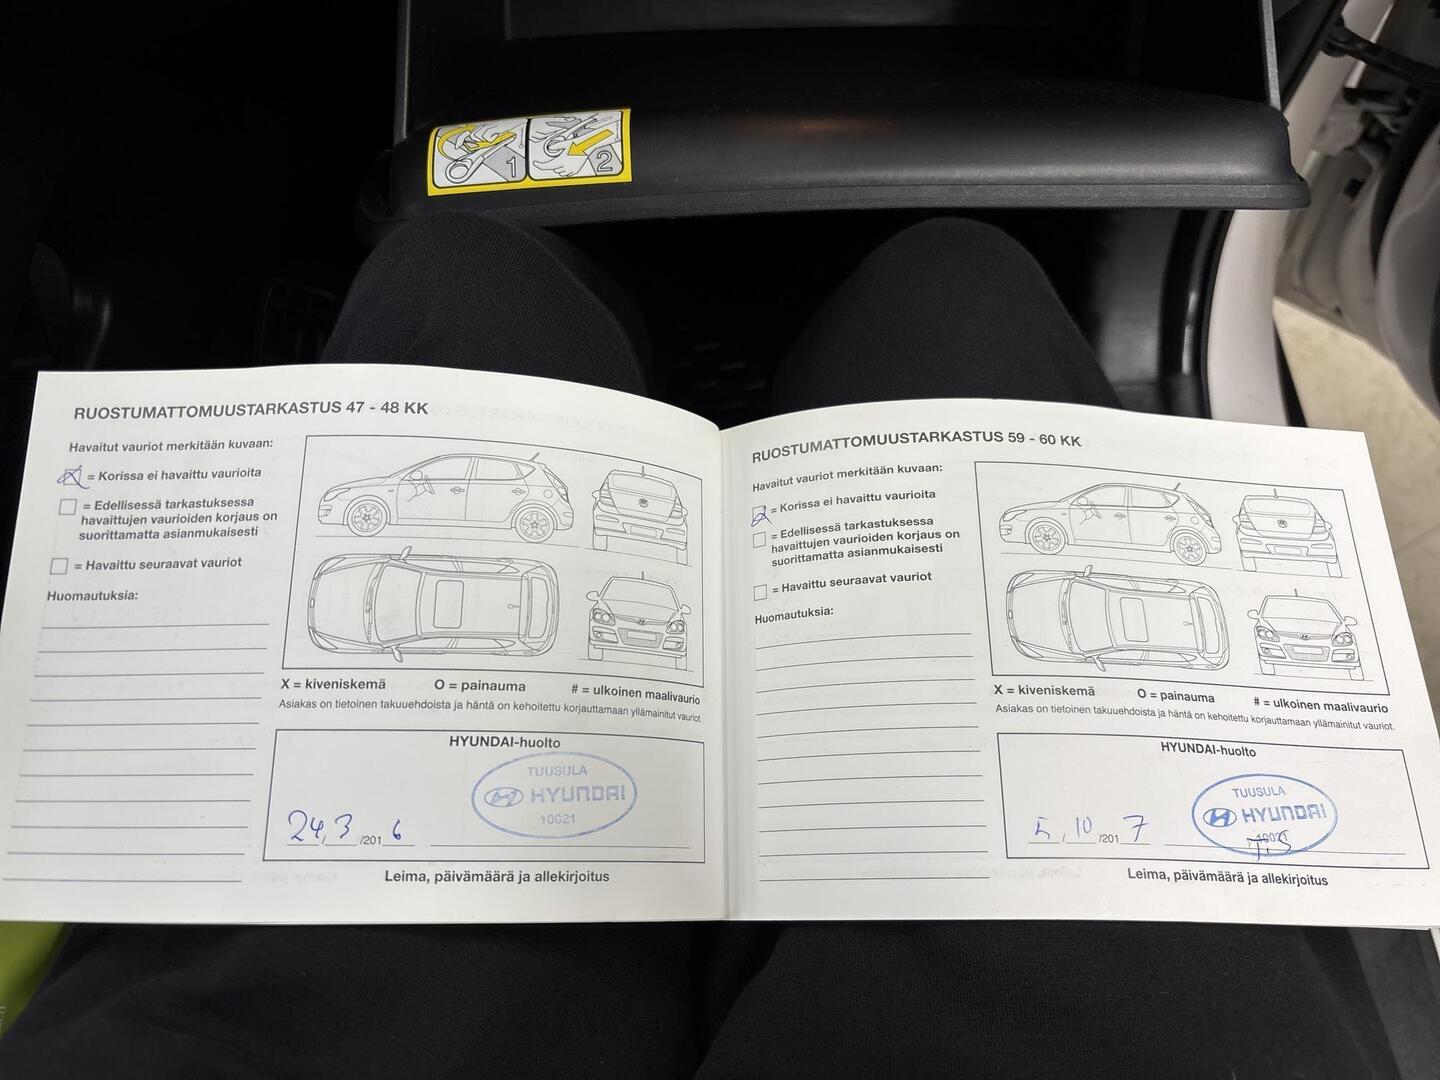 1
2
RUOSTUMATTOMUUSTARKASTUS 47 - 48 KK
Havaitut vauriot merkitään kuvaan:
= Korissa ei havaittu vaurioita
= Edellisessä tarkastuksessa
havaittujen vaurioiden korjaus on
suorittamatta asianmukaisesti
= Havaittu seuraavat vauriot
Huomautuksia:
X = kiveniskemä O = painauma # = ulkoinen maalivaurio
Asiakas on tietoinen takuuehdoista ja häntä on kehoitettu korjauttamaan yllämainitut vauriot.
HYUNDAI-huolto
TUUSULA
HYUNDAI
10021
24, 3 /201 6
Leima, päivämäärä ja allekirjoitus
RUOSTUMATTOMUUSTARKASTUS 59 - 60 KK
Havaitut vauriot merkitään kuvaan:
= Korissa ei havaittu vaurioita
= Edellisessä tarkastuksessa
havaittujen vaurioiden korjaus on
suorittamatta asianmukaisesti
= Havaittu seuraavat vauriot
Huomautuksia:
X = kiveniskemä O = painauma # = ulkoinen maalivaurio
Asiakas on tietoinen takuuehdoista ja häntä on kehoitettu korjauttamaan yllämainitut vauriot.
HYUNDAI-huolto
TUUSULA
HYUNDAI
10021
5, 10 /201 7
Leima, päivämäärä ja allekirjoitus